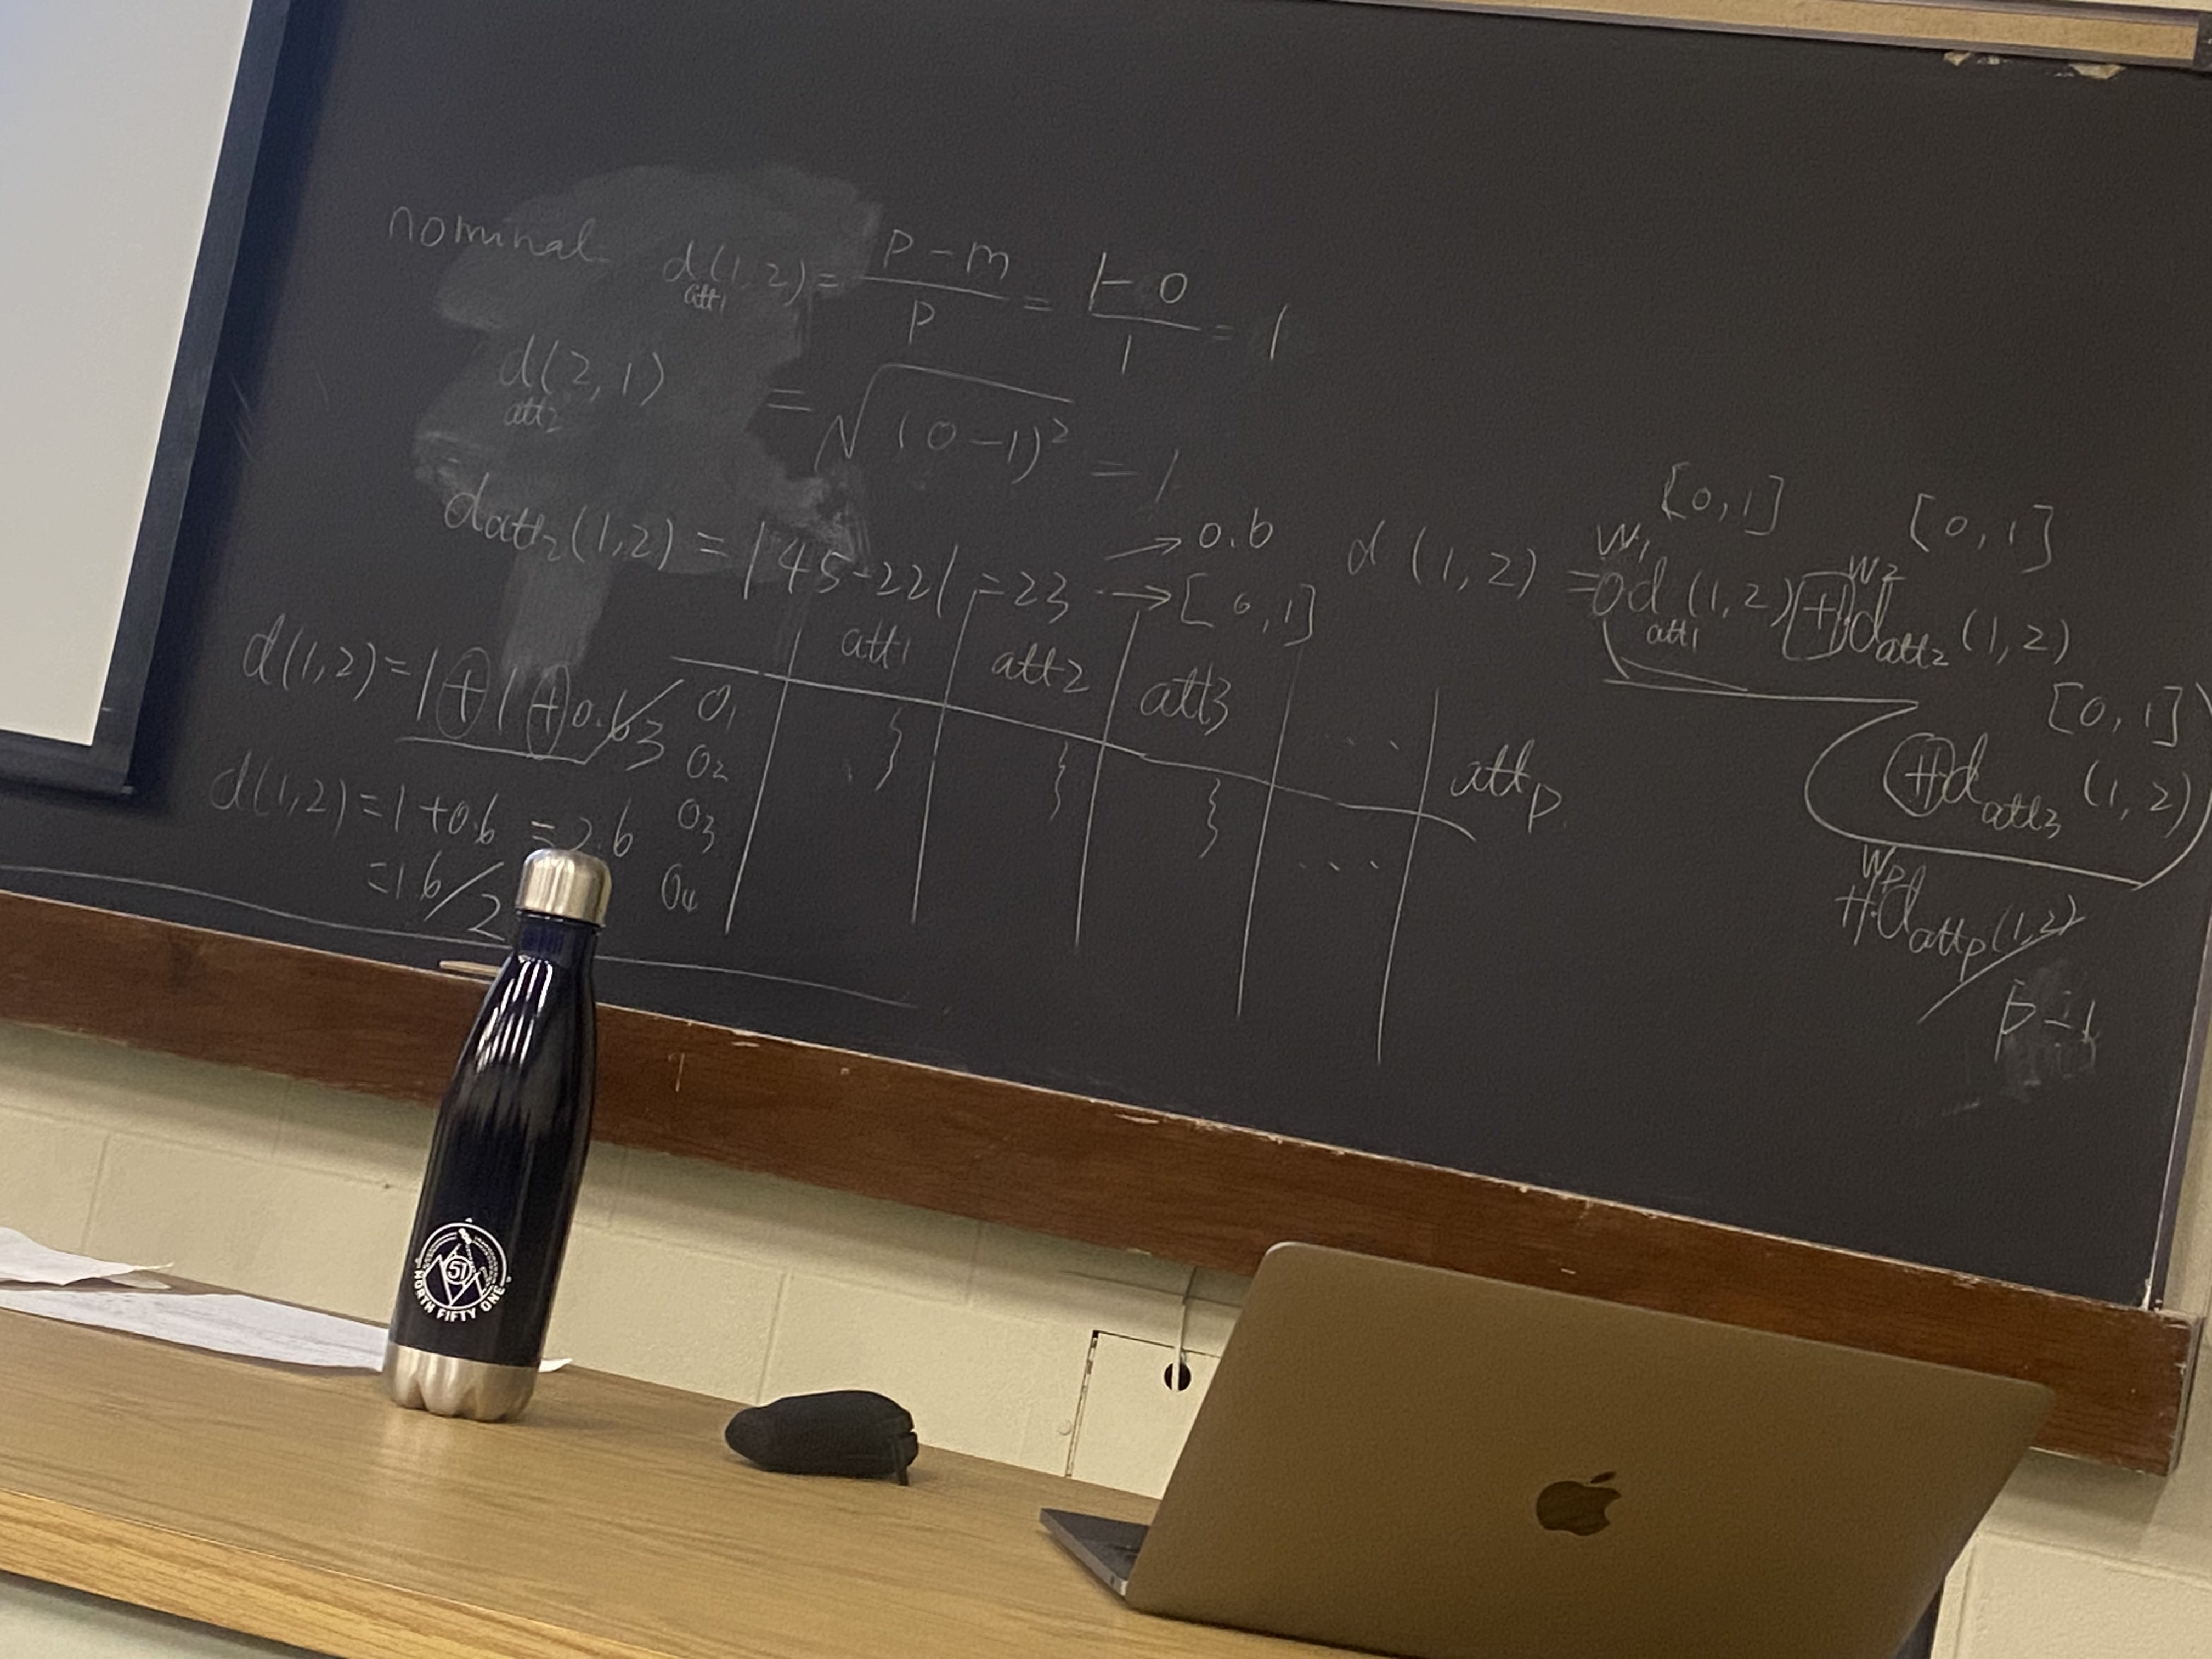 nominal d(1,2) = p-m / p = 1-0 / 1 = 1
att1
d(2,1) = √(0-1)² = 1
att2
datt2(1,2) = |45-22| = 23 → [0,1]
→ 0.6
d(1,2) = 1 + 1 + 0.6 / 3
d(1,2) = 1 + 0.6 = 2.6
= 1.6 / 2
att1 att2 att3 ... attp
o1
o2
o3
o4
...
[0,1] [0,1]
w1 w2
d(1,2) = d(1,2) + datt2(1,2)
att1
[0,1]
+ datt3(1,2)
wp
+ dattp(1,2)
NORTH FIFTY ONE
51